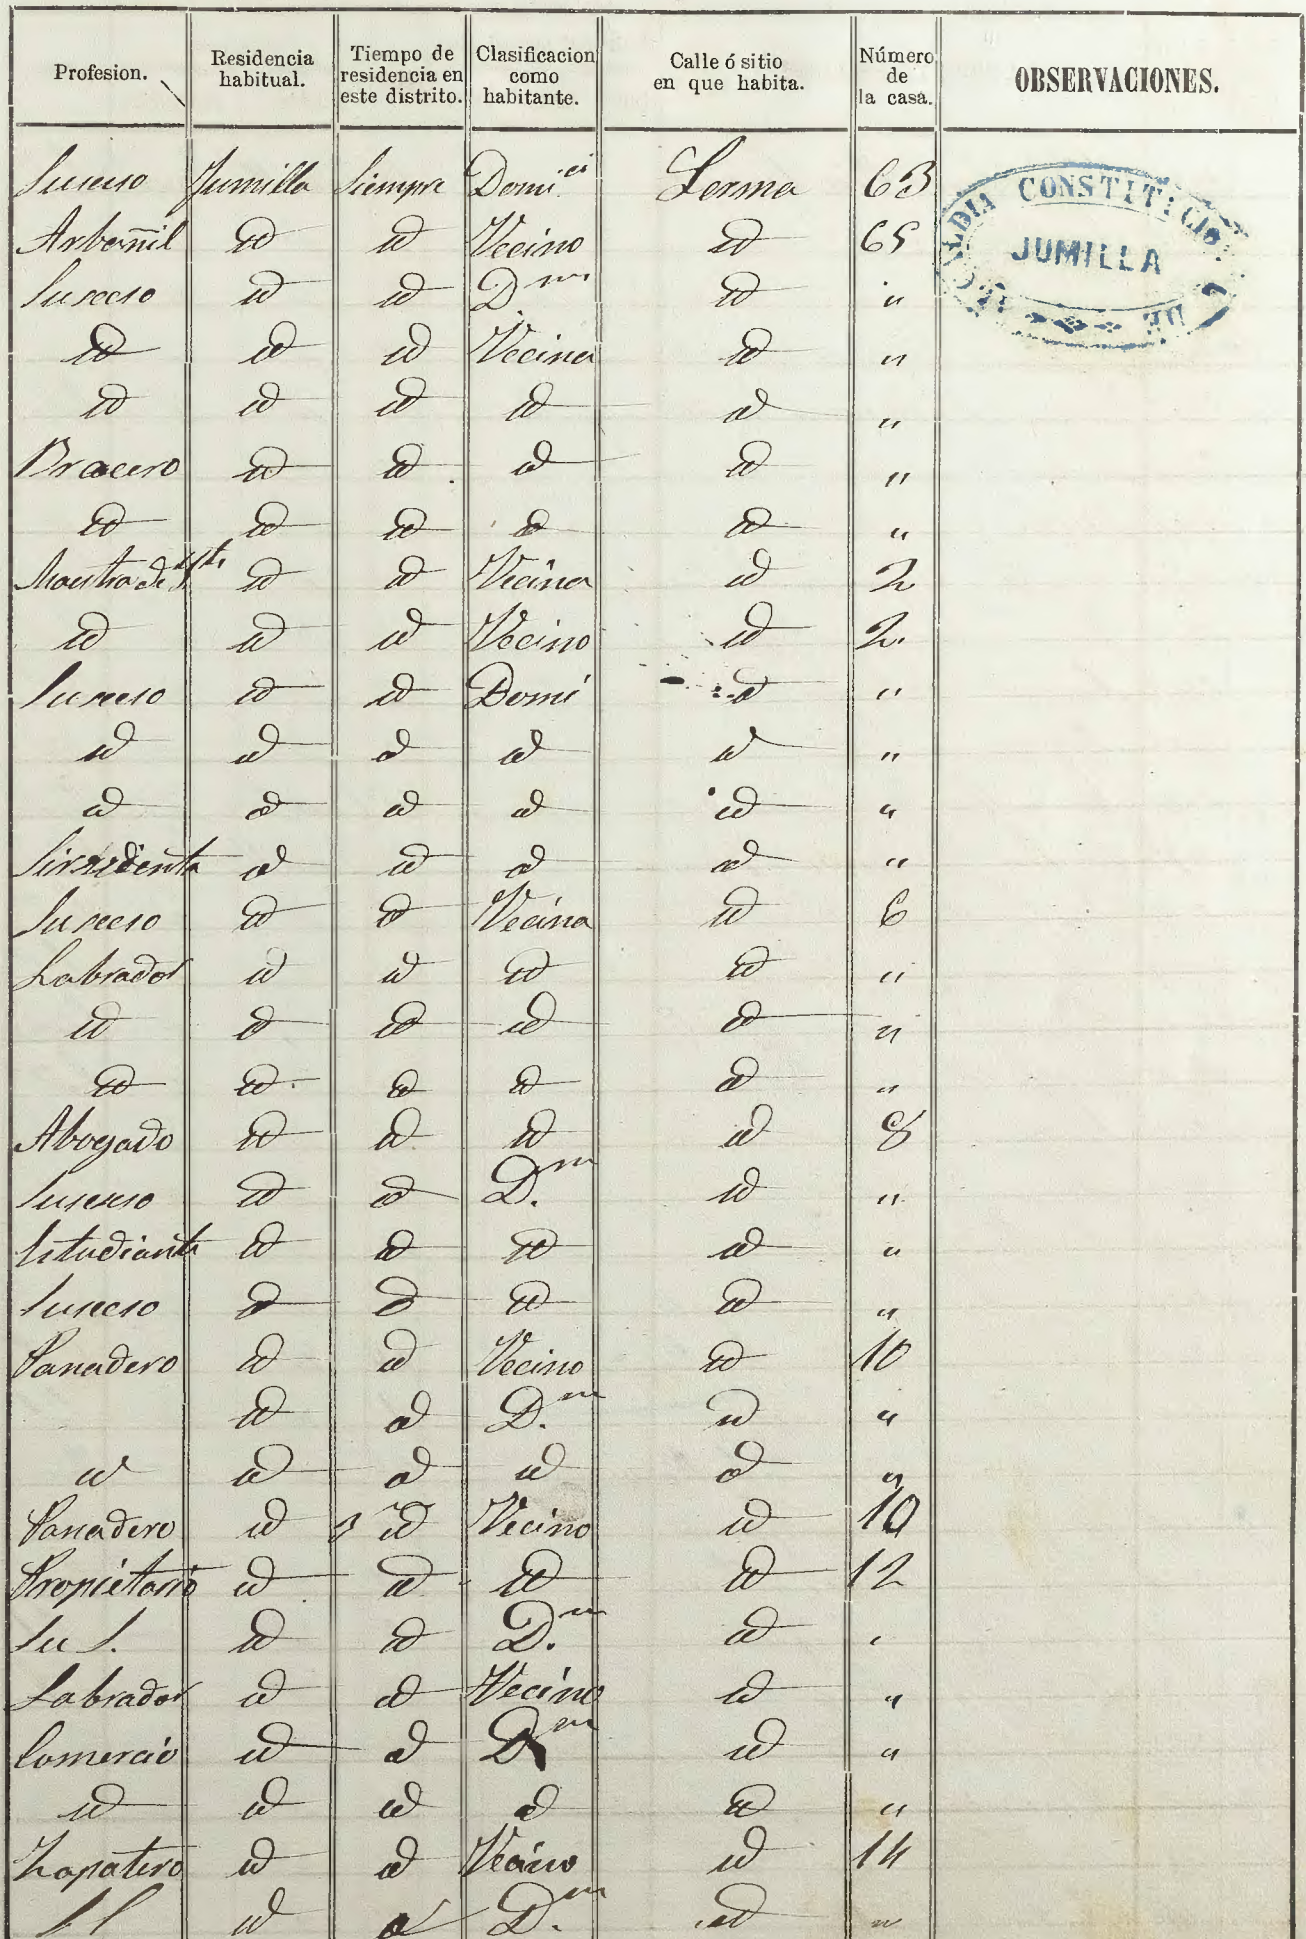 Profesion. Residencia habitual. Tiempo de residencia en este distrito. Clasificacion como habitante. Calle ó sitio en que habita. Número de la casa. OBSERVACIONES.
Su sexso Jumilla Siempre Domi.ci Lerma 63
Arbañil id id Vecino id 65
Su secso id id D.m id "
id id id Vecina id "
id id id id id "
Bracero id id id id "
id id id id id "
Maestra de id id Vecina id 2
id id id Vecino id 2.
Su secso id id Domi id "
id id id id id "
id id id id id "
Sirvidenta id id id id "
Su secso id id Vecina id 6
Labrador id id id id "
id id id id id "
id id id id id "
Abogado id id id id 8
Su sexso id id D.m id "
Estudiante id id id id "
Su secso id id id id "
Panadero id id Vecino id 10
id id D.m id "
id id id id id "
Panadero id id Vecino id 10
Propietario id id id id 12
Su S. id id D.m id "
Labrador id id Vecino id "
Comercio id id Dm id "
id id id id id "
Zapatero id id Vecino id 14
S S id id D.m id "
ALCALDIA CONSTITUCIONAL DE
JUMILLA